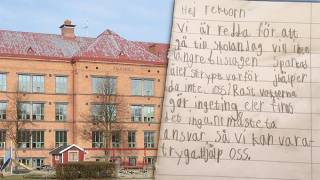 Hej rektorn
Vi är redda för att
gå till skolan Jag vill inte
längre bli slagen sparkad
eler strypt varför hjälper
ni inte oss/Rastvagterna
gör ingeting eler finns
det ingen ni måste ta
ansvar så Vi kan vara
trygga Hjälp oss.